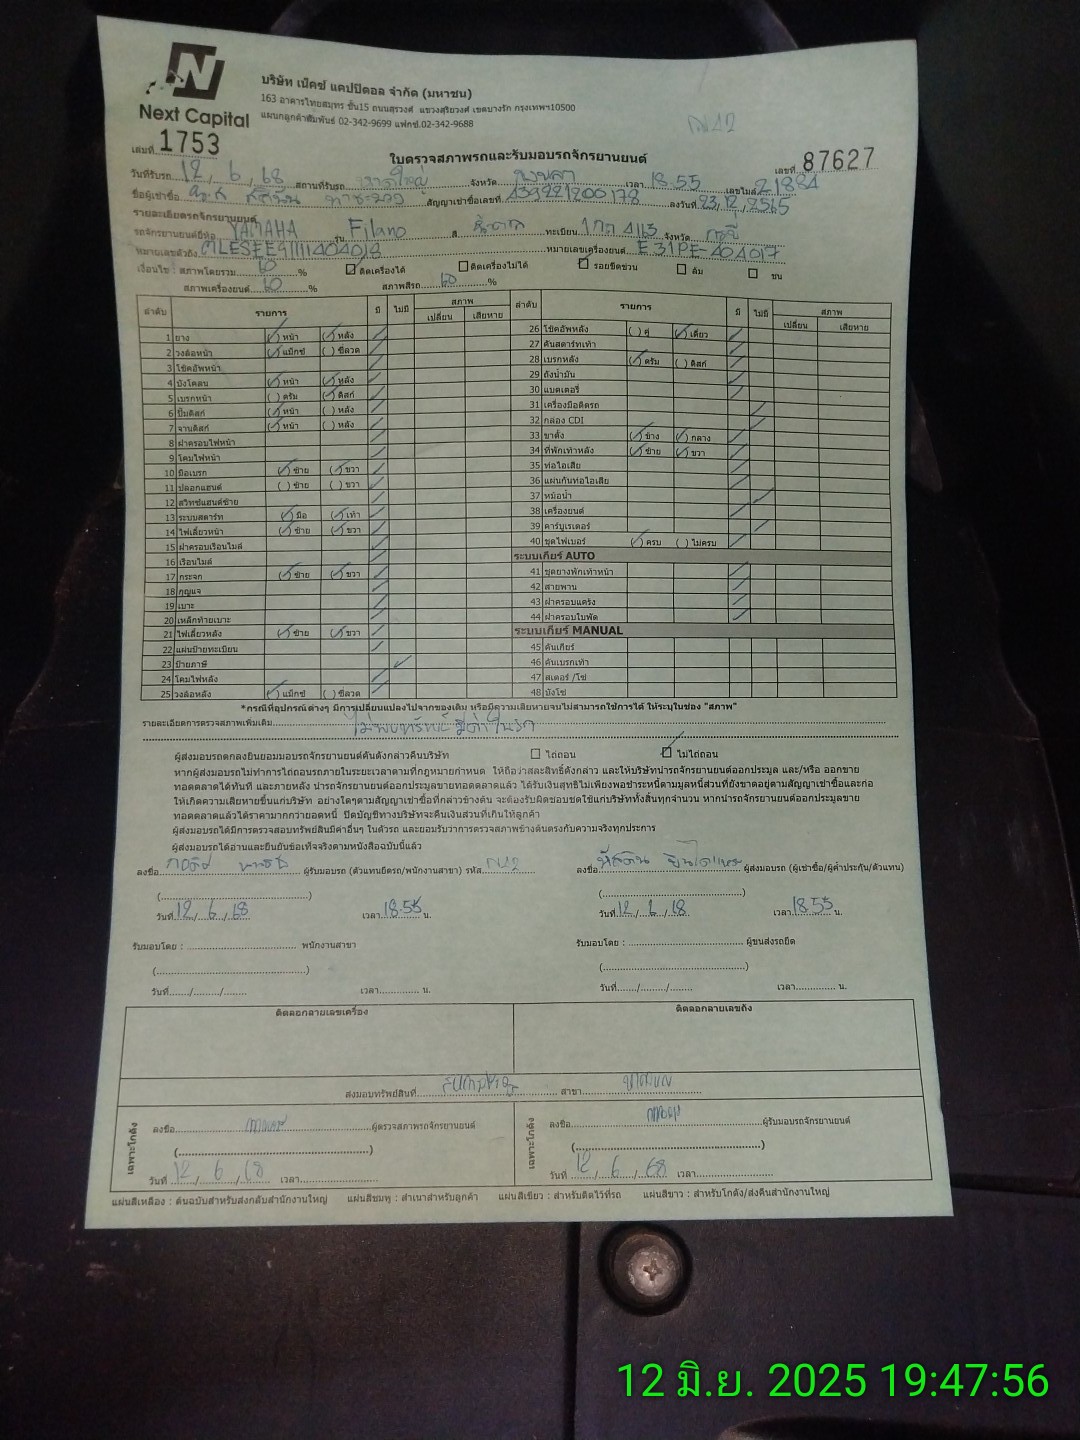 N
Next Capital
บริษัท เน็คซ์ แคปปิตอล จำกัด (มหาชน)
163 อาคารไทยสมุทร ชั้น15 ถนนสุรวงศ์ แขวงสุริยวงศ์ เขตบางรัก กรุงเทพฯ10500
แผนกลูกค้าสัมพันธ์ 02-342-9699 แฟกซ์.02-342-9688
เล่มที่ 1753
ใบตรวจสภาพรถและรับมอบรถจักรยานยนต์
เลขที่ 87627
วันที่รับรถ 12 / 6 / 68 สถานที่รับรถ หาดใหญ่ จังหวัด สงขลา เวลา 18.55 เลขไมล์ 21884
ชื่อผู้เช่าซื้อ สัญญาเช่าซื้อเลขที่ 439221200178 ลงวันที่ 23, 12, 2565
รายละเอียดรถจักรยานยนต์
รถจักรยานยนต์ยี่ห้อ YAMAHA รุ่น Filano สี ทะเบียน 1กก 4113 จังหวัด กระบี่
หมายเลขตัวถัง MLESEE91111404018 หมายเลขเครื่องยนต์ E31PE-404017
เงื่อนไข : สภาพโดยรวม 60 % ติดเครื่องได้ ติดเครื่องไม่ได้ รอยขีดข่วน ล้ม ชน
สภาพเครื่องยนต์ 60 % สภาพสีรถ 60 %
ลำดับ รายการ มี ไม่มี สภาพ เปลี่ยน เสียหาย ลำดับ รายการ มี ไม่มี สภาพ เปลี่ยน เสียหาย
1 ยาง (✓) หน้า (✓) หลัง
2 วงล้อหน้า (✓) แม็กซ์ ( ) ซี่ลวด
3 โช้คอัพหน้า
4 บังโคลน (✓) หน้า (✓) หลัง
5 เบรกหน้า ( ) ดรัม (✓) ดิสก์
6 ปั๊มดิสก์ (✓) หน้า ( ) หลัง
7 จานดิสก์ (✓) หน้า ( ) หลัง
8 ฝาครอบไฟหน้า
9 โคมไฟหน้า
10 มือเบรก (✓) ซ้าย (✓) ขวา
11 ปลอกแฮนด์ ( ) ซ้าย ( ) ขวา
12 สวิทซ์แฮนด์ซ้าย
13 ระบบสตาร์ท (✓) มือ (✓) เท้า
14 ไฟเลี้ยวหน้า (✓) ซ้าย (✓) ขวา
15 ฝาครอบเรือนไมล์
16 เรือนไมล์
17 กระจก (✓) ซ้าย (✓) ขวา
18 กุญแจ
19 เบาะ
20 เหล็กท้ายเบาะ
21 ไฟเลี้ยวหลัง (✓) ซ้าย (✓) ขวา
22 แผ่นป้ายทะเบียน
23 ป้ายภาษี
24 โคมไฟหลัง
25 วงล้อหลัง (✓) แม็กซ์ ( ) ซี่ลวด
26 โช้คอัพหลัง ( ) คู่ (✓) เดี่ยว
27 คันสตาร์ทเท้า
28 เบรกหลัง (✓) ดรัม ( ) ดิสก์
29 ถังน้ำมัน
30 แบตเตอรี่
31 เครื่องมือติดรถ
32 กล่อง CDI
33 ขาตั้ง (✓) ข้าง (✓) กลาง
34 ที่พักเท้าหลัง (✓) ซ้าย (✓) ขวา
35 ท่อไอเสีย
36 แผ่นกันท่อไอเสีย
37 หม้อน้ำ
38 เครื่องยนต์
39 คาร์บูเรเตอร์
40 ชุดไฟเบอร์ (✓) ครบ ( ) ไม่ครบ
ระบบเกียร์ AUTO
41 ชุดยางพักเท้าหน้า
42 สายพาน
43 ฝาครอบแคร้ง
44 ฝาครอบใบพัด
ระบบเกียร์ MANUAL
45 คันเกียร์
46 คันเบรกเท้า
47 สเตอร์ /โซ่
48 บังโซ่
*กรณีที่อุปกรณ์ต่างๆ มีการเปลี่ยนแปลงไปจากของเดิม หรือมีความเสียหายจนไม่สามารถใช้การได้ ให้ระบุในช่อง "สภาพ"
รายละเอียดการตรวจสภาพเพิ่มเติม ไม่พบทรัพย์สินมีค่าในรถ
ผู้ส่งมอบรถตกลงยินยอมมอบรถจักรยานยนต์คันดังกล่าวคืนบริษัท ไถ่ถอน ไม่ไถ่ถอน
หากผู้ส่งมอบรถไม่ทำการไถ่ถอนรถภายในระยะเวลาตามที่กฎหมายกำหนด ให้ถือว่าสละสิทธิ์ดังกล่าว และให้บริษัทนำรถจักรยานยนต์ออกประมูล และ/หรือ ออกขาย
ทอดตลาดได้ทันที และภายหลัง นำรถจักรยานยนต์ออกประมูลขายทอดตลาดแล้ว ได้รับเงินสุทธิไม่เพียงพอชำระหนี้ตามมูลหนี้ส่วนที่ยังขาดอยู่ตามสัญญาเช่าซื้อและก่อ
ให้เกิดความเสียหายขึ้นแก่บริษัท อย่างใดๆตามสัญญาเช่าซื้อที่กล่าวข้างต้น จะต้องรับผิดชอบชดใช้แก่บริษัททั้งสิ้นทุกจำนวน หากนำรถจักรยานยนต์ออกประมูลขาย
ทอดตลาดแล้วได้ราคามากกว่ายอดหนี้ ปิดบัญชีทางบริษัทจะคืนเงินส่วนที่เกินให้ลูกค้า
ผู้ส่งมอบรถได้มีการตรวจสอบทรัพย์สินมีค่าอื่นๆ ในตัวรถ และยอมรับว่าการตรวจสภาพข้างต้นตรงกับความจริงทุกประการ
ผู้ส่งมอบรถได้อ่านและยืนยันข้อเท็จจริงตามหนังสือฉบับนี้แล้ว
ลงชื่อ ผู้รับมอบรถ (ตัวแทนยึดรถ/พนักงานสาขา) รหัส ลงชื่อ ผู้ส่งมอบรถ (ผู้เช่าซื้อ/ผู้ค้ำประกัน/ตัวแทน)
(..............................) (..............................)
วันที่ 12 / 6 / 68 เวลา 18.55 น. วันที่ 12 / 6 / 68 เวลา 18.55 น.
รับมอบโดย : .............................. พนักงานสาขา รับมอบโดย : .............................. ผู้ขนส่งรถยึด
(..............................) (..............................)
วันที่....../......../....... เวลา.............. น. วันที่....../......../....... เวลา.............. น.
ติดลอกลายเลขเครื่อง ติดลอกลายเลขถัง
ส่งมอบทรัพย์สินที่ สาขา
เฉพาะโกดัง ลงชื่อ ผู้ตรวจสภาพรถจักรยานยนต์ เฉพาะโกดัง ลงชื่อ ผู้รับมอบรถจักรยานยนต์
(..............................) (..............................)
วันที่ 12 / 6 / 68 เวลา.................. วันที่ 12 / 6 / 68 เวลา..................
แผ่นสีเหลือง : ต้นฉบับสำหรับส่งกลับสำนักงานใหญ่ แผ่นสีชมพู : สำเนาสำหรับลูกค้า แผ่นสีเขียว : สำหรับติดไว้ที่รถ แผ่นสีขาว : สำหรับโกดัง/ส่งคืนสำนักงานใหญ่
12 มิ.ย. 2025 19:47:56